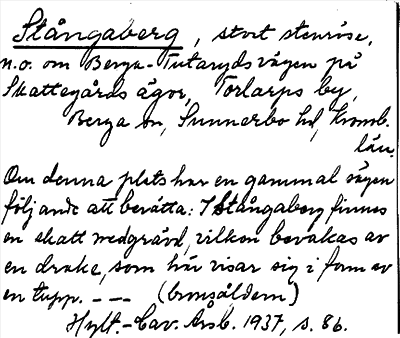 Stångaberg, stort stenröse,
n.o. om Berga-Tutarydsvägen på
Skattegårds ägor, Torlarps by,
Berga sn, Sunnerbo hd, Kronob.
län.
Om denna plats har en gammal sägen
följande att berätta: I Stångaberg finnes
en skatt nedgrävd, vilken bevakas av
en drake, som här visar sig i form av
en tupp. - - - (bronsåldern)
Hylt.-Cav. Årsb. 1937, s. 86.